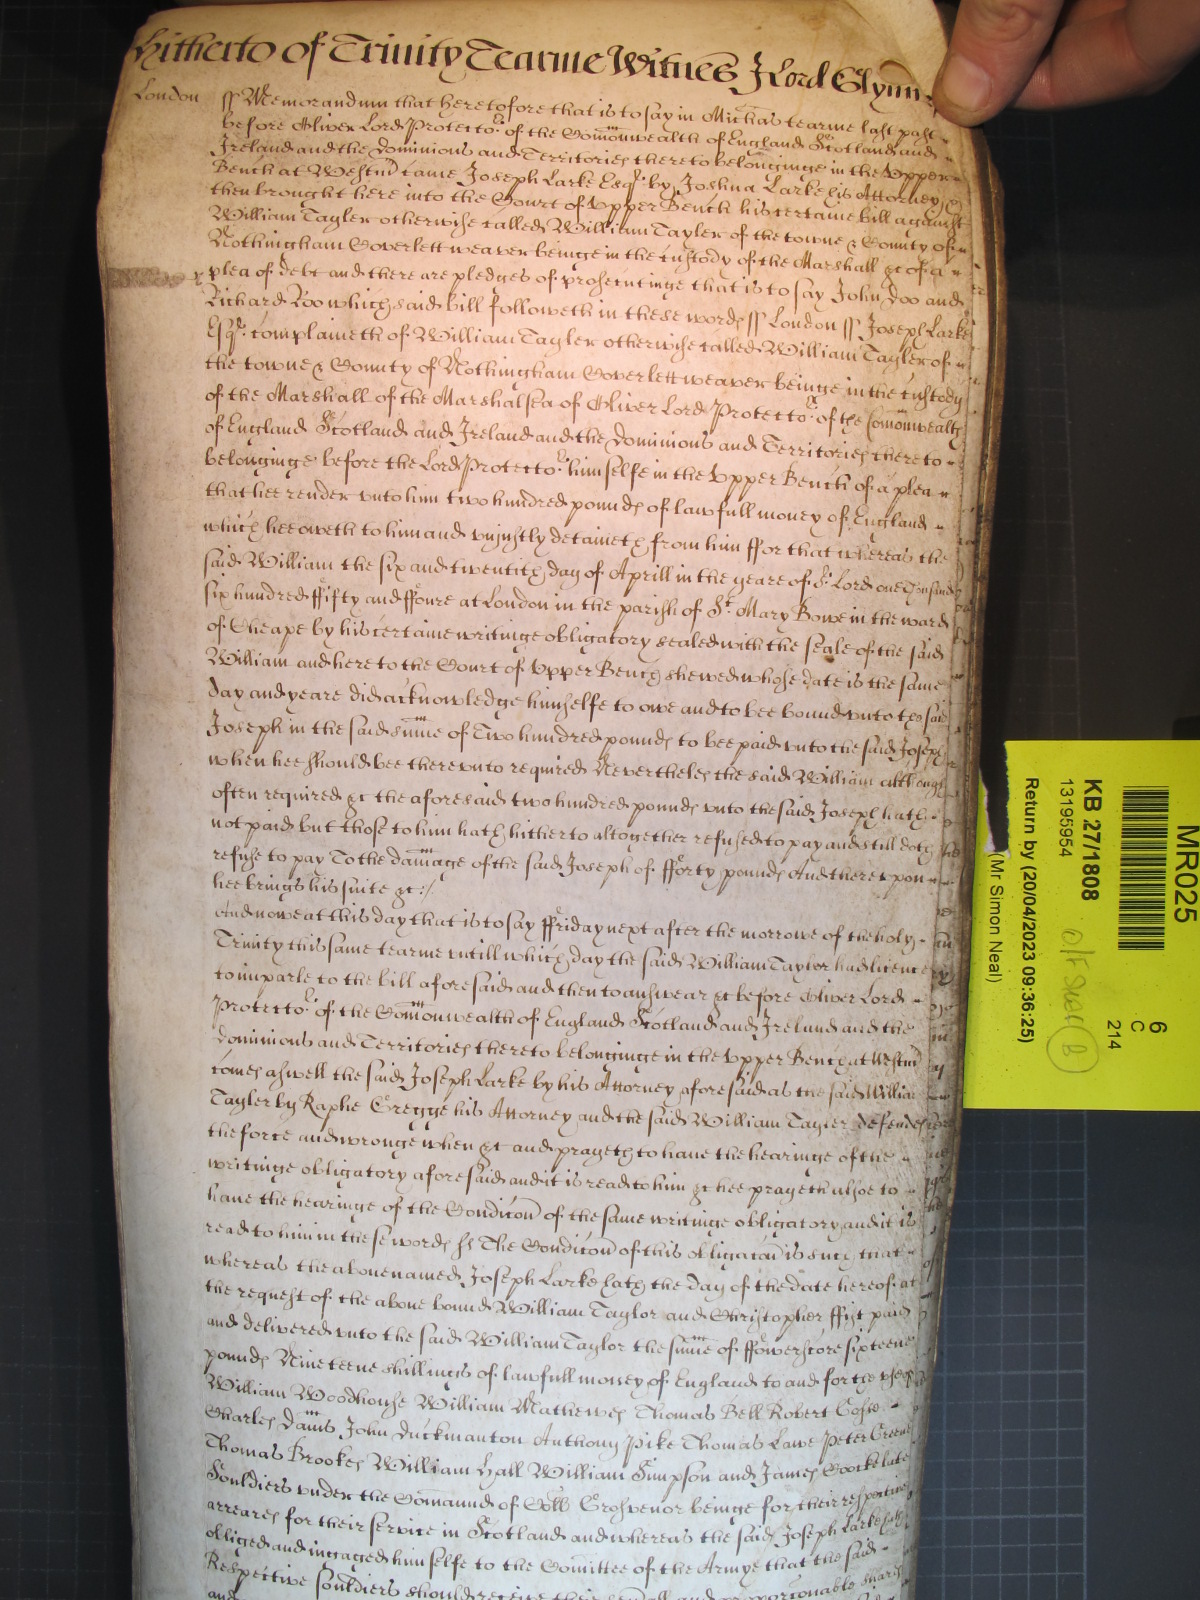 hitherto of Trinity Tearme Witnes J Lord Glynn
London ss Memorandum that heretofore that is to say in Michas tearme last past
before Oliver Lord Protector of the Comonwealth of England Scotland and
Ireland and the Dominions and Territories thereto belonginge in the Vpper
Bench at Westmr came Joseph Larke Esqr by Joshua Larke his Attorney &
then brought here into the Court of Vpper Bench his certaine bill against
William Tayler otherwise called William Tayler of the towne & County of
Nothingham Coverlett weaver beinge in the custody of the Marshall &c of a
plea of debt and there are pledges of prosecutinge that is to say John Doo and
Richard Roo which said bill followeth in these words ss London ss Joseph Larke
Esqr complaineth of William Tayler otherwise called William Tayler of
the towne & County of Nothingham Coverlett weaver beinge in the custody
of the Marshall of the Marshalsea of Oliver Lord Protector of the Comonwealth
of England Scotland and Ireland and the Dominions and Territories thereto
belonginge before the Lord Protector himselfe in the Vpper Bench of a plea
that hee render vnto him two hundred pounds of lawfull money of England
which hee oweth to him and vniustly detaineth from him ffor that whereas the
said William the six and twentith day of Aprill in the yeare of or Lord one thousand
six hundred ffifty and ffoure at London in the parish of St Mary Bowe in the ward
of Cheape by his certaine writinge obligatory sealed with the seale of the said
William and here to the Court of Vpper Bench shewed whose date is the same
day and yeare did acknowledge himselfe to owe and to bee bound vnto the said
Joseph in the said sume of Two hundred pounds to bee paid vnto the said Joseph
when hee should bee therevnto required Nevertheles the said William although
often required &c the aforesaid two hundred pounds vnto the said Joseph hath
not paid but those to him hath hitherto altogether refused to pay and still doth
refuse to pay To the damage of the said Joseph of fforty pounds And therevpon
hee brings his suite &c:/
And nowe at this day that is to say ffriday next after the morrowe of the holy
Trinity this same tearme vntill which day the said William Taylor had licence
to imparle to the bill aforesaid and then to answear &c before Oliver Lord
Protector of the Comonwealth of England Scotland and Ireland and the
Dominions and Territories thereto belonginge in the Vpper Bench at Westmr
comes aswell the said Joseph Larke by his Attorney aforesaid as the said William
Tayler by Raphe Gregge his Attorney and the said William Tayler defendes
the force and wronge when &c and prayeth to haue the hearinge of the
writinge obligatory aforesaid and it is read to him &c hee prayeth alsoe to
haue the hearinge of the Condicon of the same writinge obligatory and it is
read to him in these words ss The Condicon of this obligacon is such that
whereas the abouenamed Joseph Larke hath the day of the date hereof at
the request of the aboue bound William Taylor and Christopher ffist paid
and delivered vnto the said William Taylor the sume of ffowerscore sixteene
pounds Nineteene shillings of lawfull money of England to and for the vse of
William Woodhouse William Mathewes Thomas Bell Robert
Charles Davis John Duckmanton Anthony Pike Thomas Lawe Peter Greene
Thomas Brookes William Hall William Simpson and James Coocke late
Souldiers vnder the Comaund of Coll Grosvenor beinge for their respective
arreares for their service in Scotland and whereas the said Joseph Larke hath
obliged and ingaged himselfe to the Comittee of the Armye that the said
Respective souldiers should receive their and proporconable shares
and
MR025
6
C
214
KB 27/1808
13195954
Return by (20/04/2023 09:36:25)
(Mr Simon Neal)